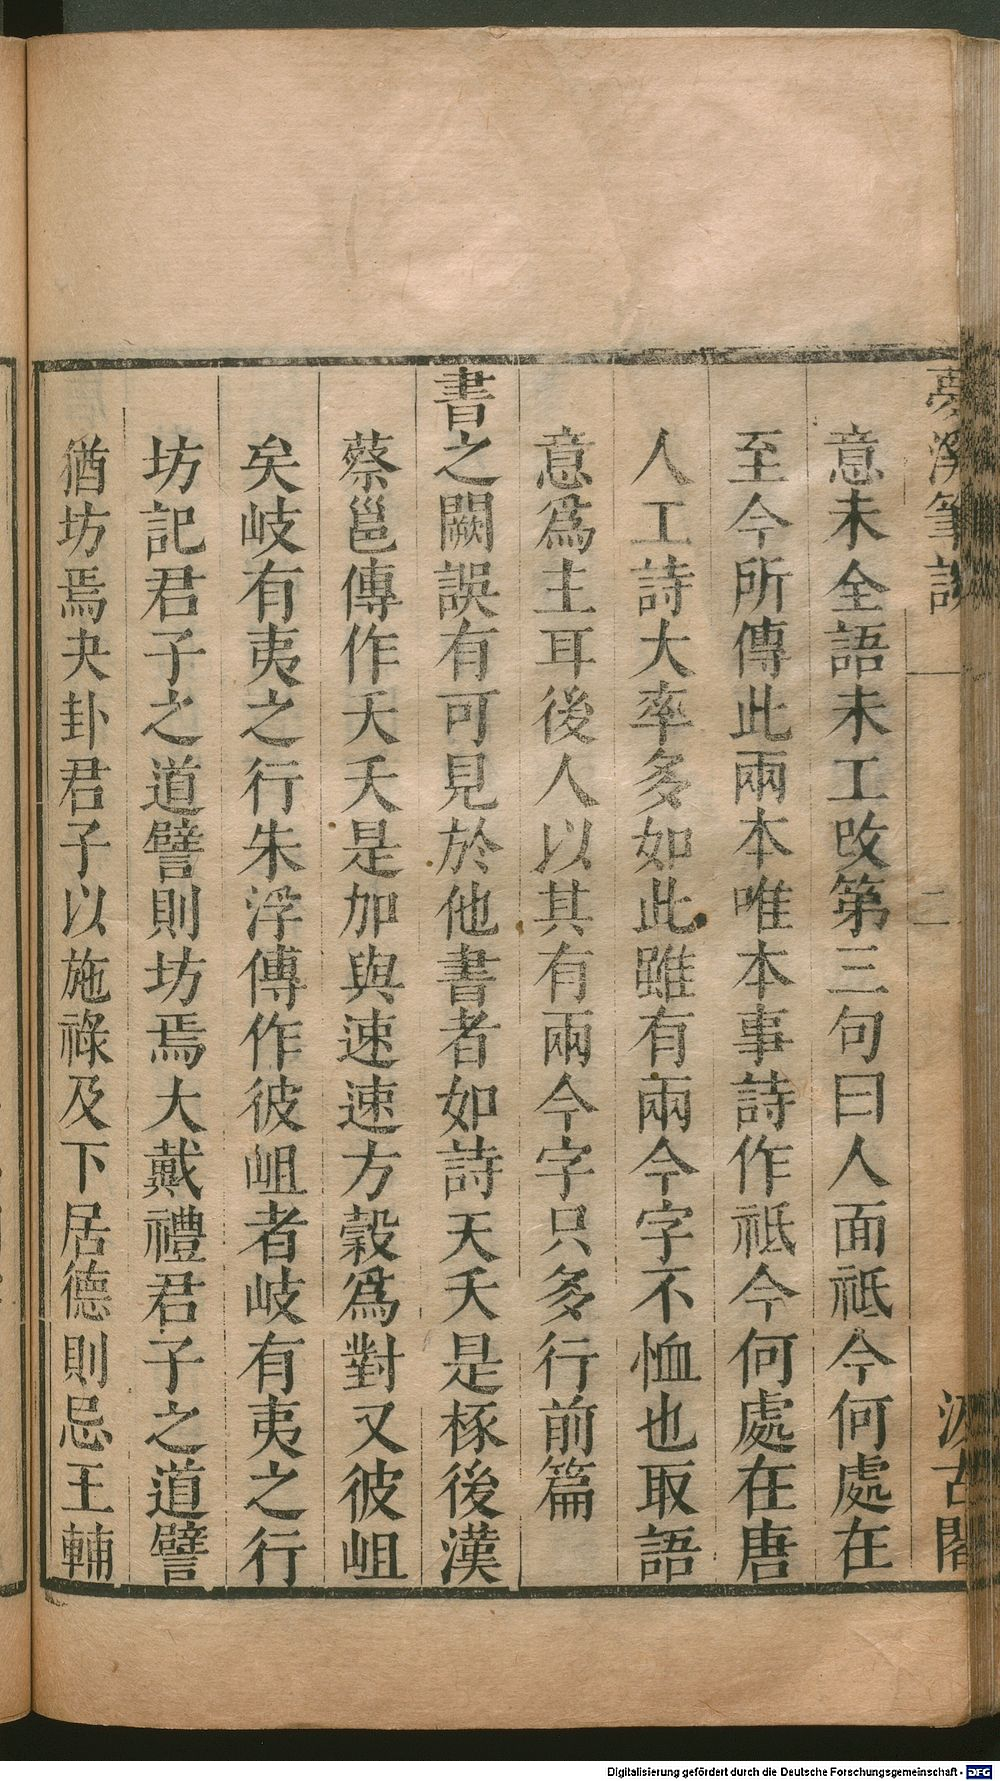 夢溪筆談 二 汲古閣
意未全語未工改第三句曰人面祗今何處在
至今所傳此兩本唯本事詩作祗今何處在唐
人工詩大率多如此雖有兩今字不恤也取語
意爲主耳後人以其有兩今字只多行前篇
書之闕誤有可見於他書者如詩天夭是椓後漢
蔡邕傳作夭夭是加與速速方穀爲對又彼岨
矣岐有夷之行朱浮傳作彼岨者岐有夷之行
坊記君子之道譬則坊焉大戴禮君子之道譬
猶坊焉夬卦君子以施祿及下居德則忌王輔
Digitalisierung gefördert durch die Deutsche Forschungsgemeinschaft - DFG